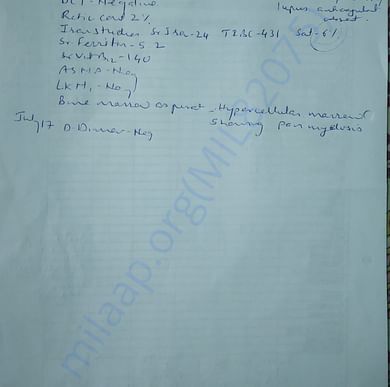 DCT - Negative
lupus anticoagulant
absent.
Retic count 2%
Iron studies Sr Iron - 24 TIBC - 431 Sat - 6%
Sr. Ferritin - 5.2
Sr Vit B12 - 140
ASMA - Neg
LKM1 - Neg
Bone marrow aspirat - Hypercellular marrow
showing panmyelosis
July 17 D-Dimer - Neg
milaap.org(MILAAP2075